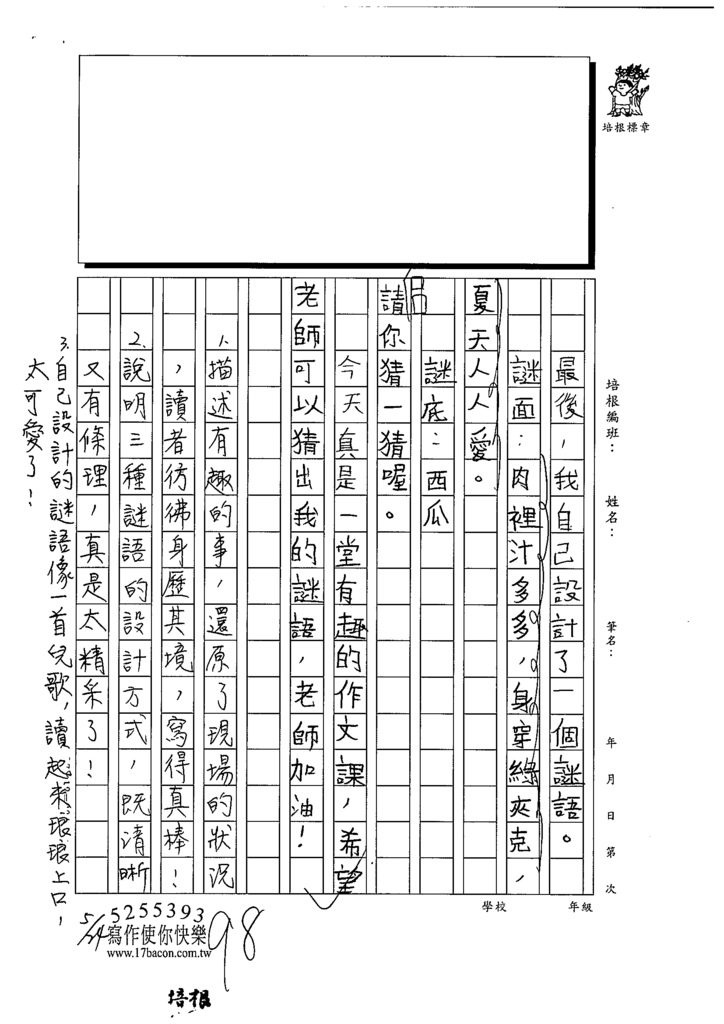 培根標章
培根編班：　姓名：　筆名：　年　月　日　第　次
學校　年級
最後，我自己設計了一個謎語。
謎面：肉裡汁多多，身穿綠夾克，
夏天人人愛。
謎底：西瓜
請你猜一猜喔。
今天真是一堂有趣的作文課，希望
老師可以猜出我的謎語，老師加油！
1.描述有趣的事，還原了現場的狀況
，讀者彷彿身歷其境，寫得真棒！
2.說明三種謎語的設計方式，既清晰
又有條理，真是太精采了！
3.自己設計的謎語像一首兒歌，讀起來琅琅上口，
太可愛了！
5/24
98
5255393
寫作使你快樂
www.17bacon.com.tw
培根